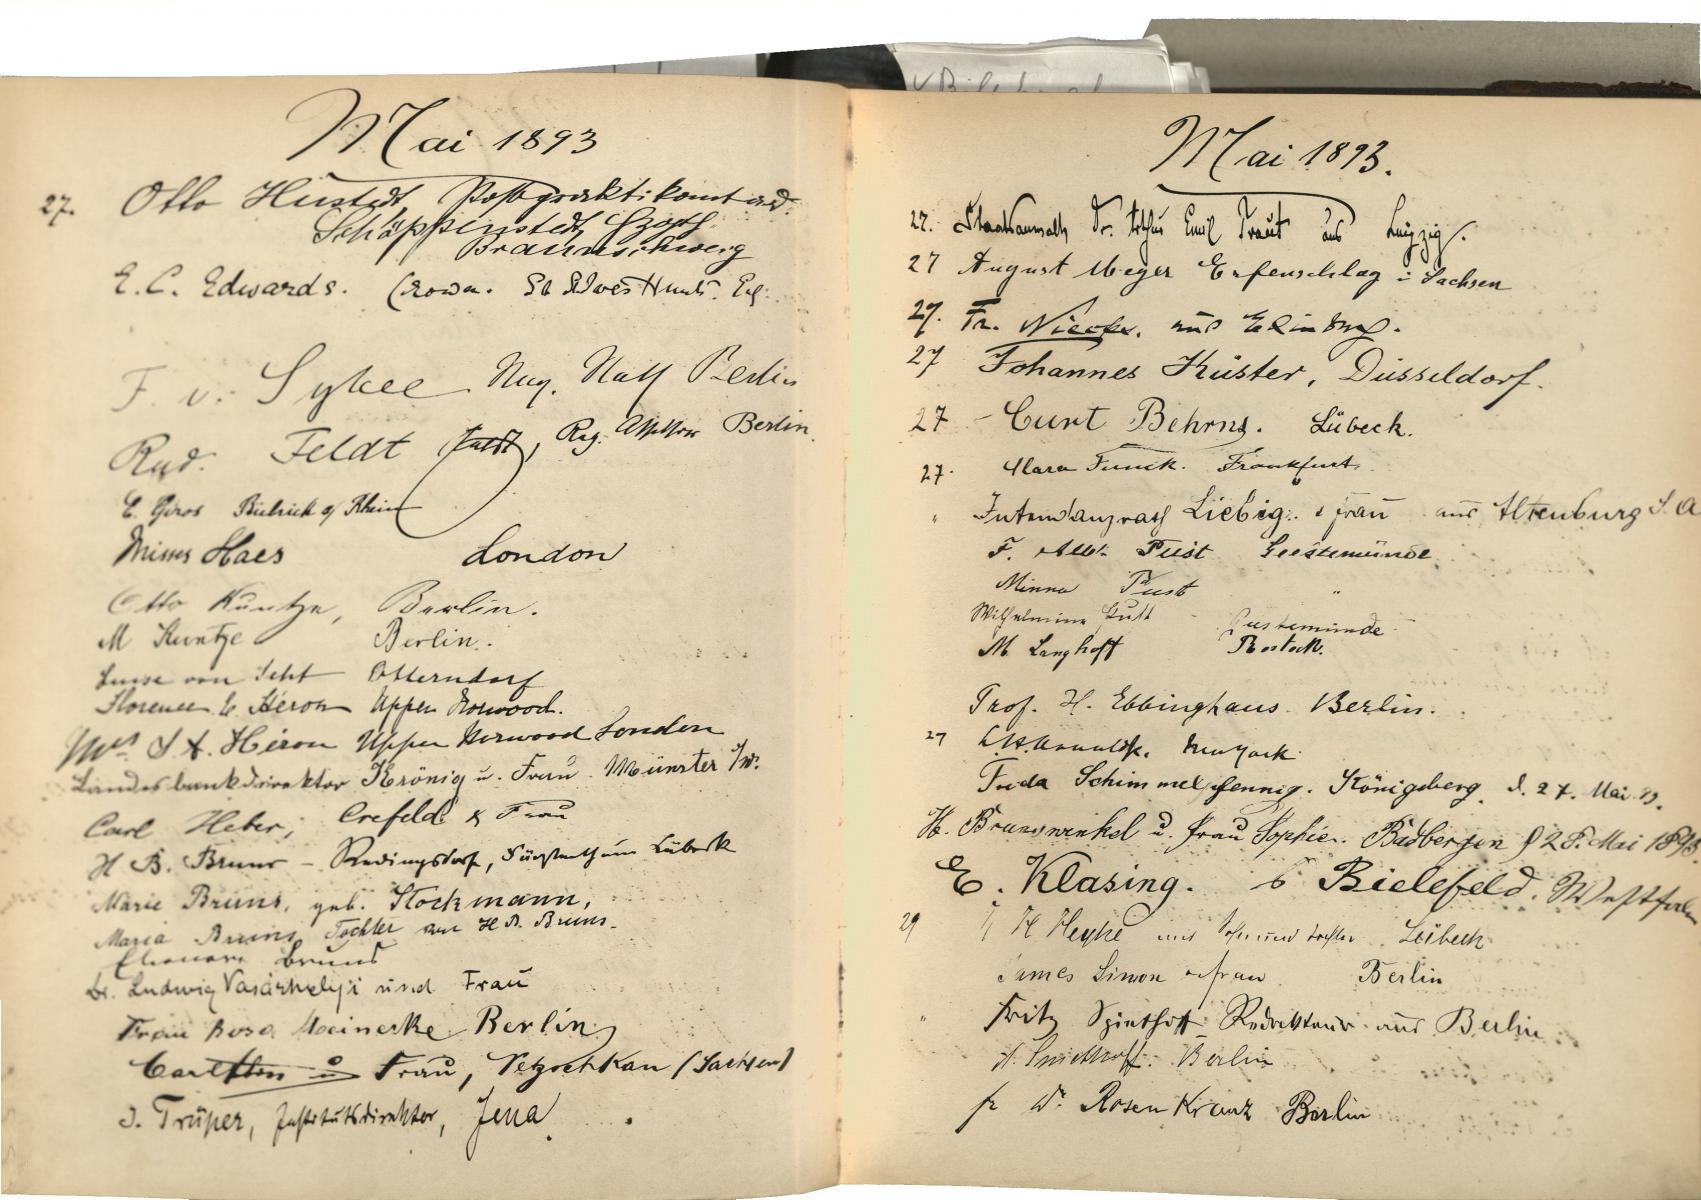 Mai 1893
27. Otto Hustedt, Postpraktikant aus
Schöppenstedt, Hzgth.
Braunschweig
E. C. Edwards. St Ives Hunts. Eng.
F. v. Reg. Rath Berlin
Rud. Feldt Feldt, Reg. Assessor Berlin.
E. Rhein
Misses Haes London
Otto Kuntze, Berlin.
M Kuntze Berlin.
Luise von Otterndorf
Florence E Heron Upper Norwood.
Mrs Heron Upper Norwood London
Landesbankdirektor Krönig u. Frau Münster i/W.
Carl Heber, Crefeld & Frau
H B. Bruns - Fürstenthum Lübeck
Marie Bruns, geb. Stockmann,
Maria Bruns Tochter von H B. Bruns.
Eleonore Bruns
Dr. Ludwig Vasárhelyi und Frau
Frau Rosa Meinerke Berlin
Carl u Frau, Netzschkau (Sachsen)
J. Trüper, Institutsdirektor, Jena
Mai 1893.
27. Staatsanwalt Dr. Arthur Emil Traut aus Leipzig.
27 August Meyer Erfenschlag i Sachsen
27. Fr. Niecks. aus Edinburg.
27 Johannes Küster, Düsseldorf.
27 - Curt Behrns. Lübeck.
27. Clara Funck. Frankfurt.
" Intendanzrath Liebig u Frau aus Altenburg S. A
F. Pust Geestemünde
Minna Pust "
Wilhelmine Geestemünde
M. Langhoff Rostock.
Prof. H. Ebbinghaus Berlin.
27 New York.
Frida Schimmelpfennig. Königsberg, d. 27. Mai 93.
H. Brunswinkel u. Frau Sophie. Badbergen d 28. Mai 1893
E. Klasing. Bielefeld. Westfalen
29 H Heyke mit Sohn und Tochter Lübeck
James Simon u Frau Berlin
" Fritz Redakteur aus Berlin
Berlin
Rosenkranz Berlin